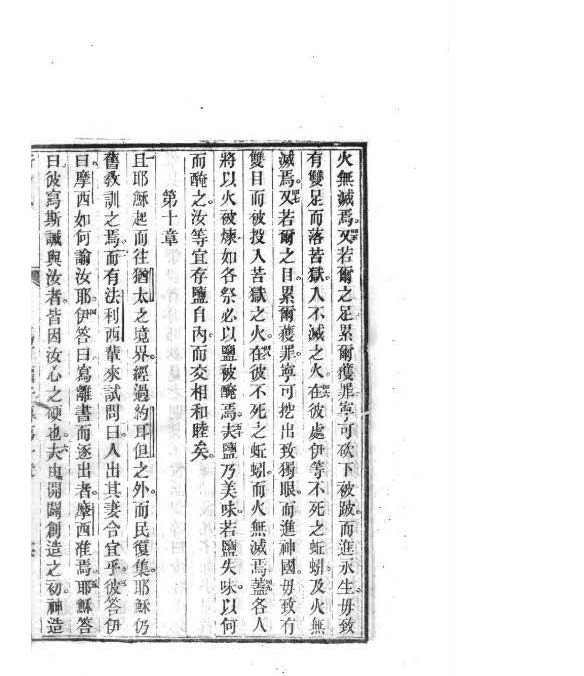 火無滅焉又若爾之足累爾獲罪寧可砍下被跛而進永生毋致
有雙足而落苦獄入不滅之火在彼處伊等不死之蚯蚓及火無
滅焉又若爾之目累爾獲罪寧可挖出致獨眼而進神國毋致有
雙目而被投入苦獄之火在彼不死之蚯蚓而火無滅焉蓋各人
將以火被煉如各祭必以鹽被醃焉夫鹽乃美味若鹽失味以何
而醃之汝等宜存鹽自內而交相和睦矣
第十章
且耶穌起而往猶太之境界經過約耳但之外而民復集耶穌仍
舊教訓之焉而有法利西輩來試問曰人出其妻合宜乎彼答伊
曰摩西如何諭汝耶伊答曰寫離書而逐出者摩西准焉耶穌答
曰彼寫斯誡與汝者皆因汝心之硬也夫由開闢創造之初神造